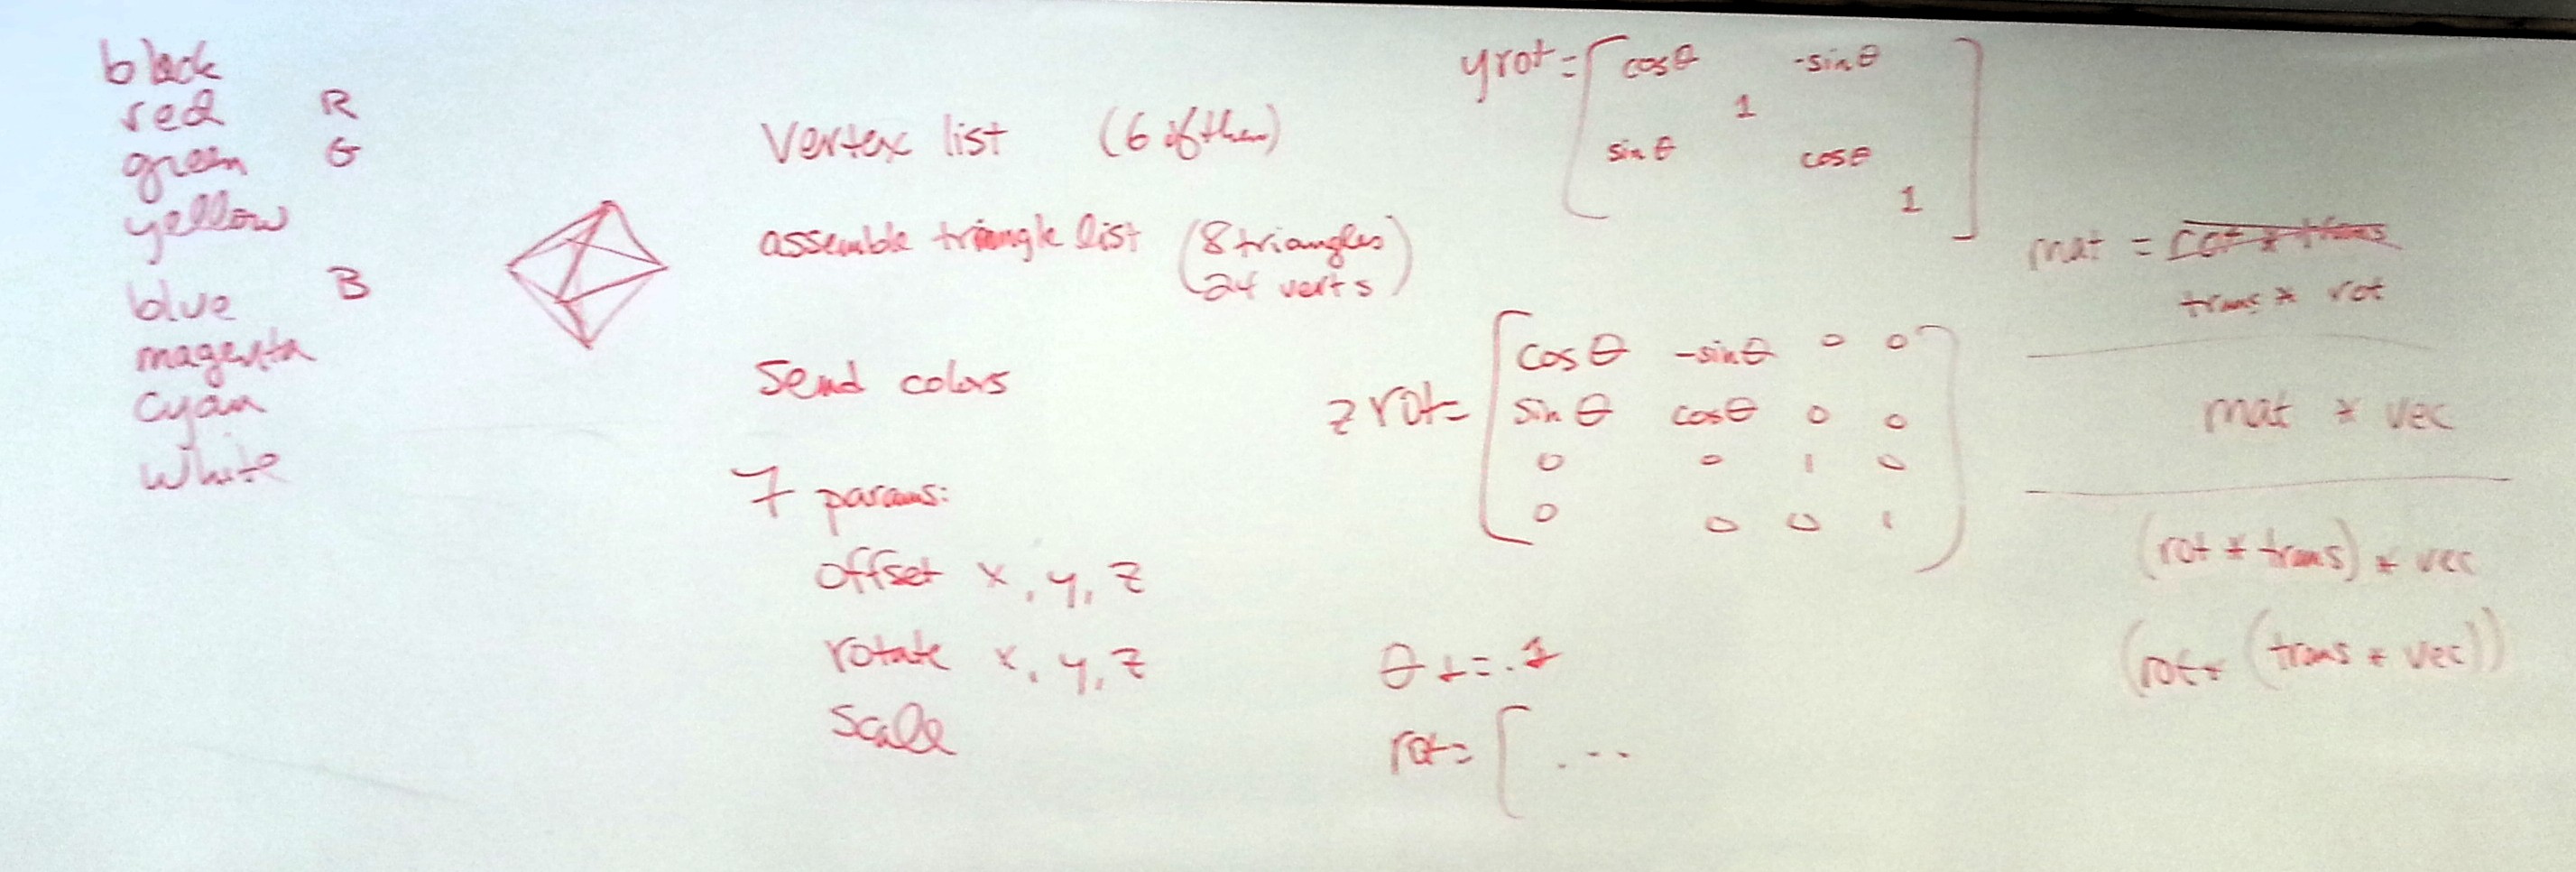 black
red R
green G
yellow
blue B
magenta
cyan
white
Vertex list (6 of them)
assemble triangle list (8 triangles
24 verts)
Send colors
7 params:
offset x, y, z
rotate x, y, z
Scale
yrot = [ cosθ -sinθ
1
sinθ cosθ
1 ]
zrot = [ cosθ -sinθ 0 0
sinθ cosθ 0 0
0 0 1 0
0 0 0 1 ]
θ += .1
rot = [ . - -
mat = rot * trans
trans * rot
mat * vec
(rot * trans) * vec
(rot * (trans * vec))